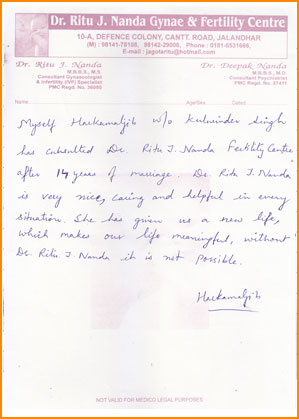 Dr. Ritu J. Nanda Gynae & Fertility Centre
10-A, DEFENCE COLONY, CANTT. ROAD, JALANDHAR
(M) : 98141-78188, 98142-29008, Phone : 0181-6531688,
E-mail : jagotaritu@hotmail.com
Dr. Ritu J. Nanda
M.B.B.S., M.S.
Consultant Gynaecologist
& Infertility (IVF) Specialist
PMC Regd. No.
Dr. Deepak Nanda
M.B.B.S., M.D.
Consultant Psychiatrist
PMC Regd. No.
Name
Age/Sex
Dated
Myself Harkamaljit w/o Kulwinder Singh
has cabulted Dr. Ritu J. Nanda Fertility Centre
after 14 years of marriage. Dr. Ritu J. Nanda
is very nice, caring and helpful in every
situation. She has given us a new life,
which makes our life meaningful, without
Dr. Ritu J. Nanda it is not possible.
Harkamaljit
NOT VALID FOR MEDICO LEGAL PURPOSES